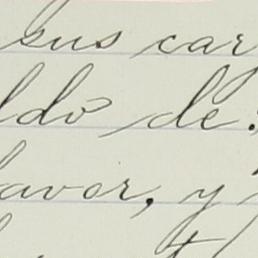 sus car
ldó de
favor, y